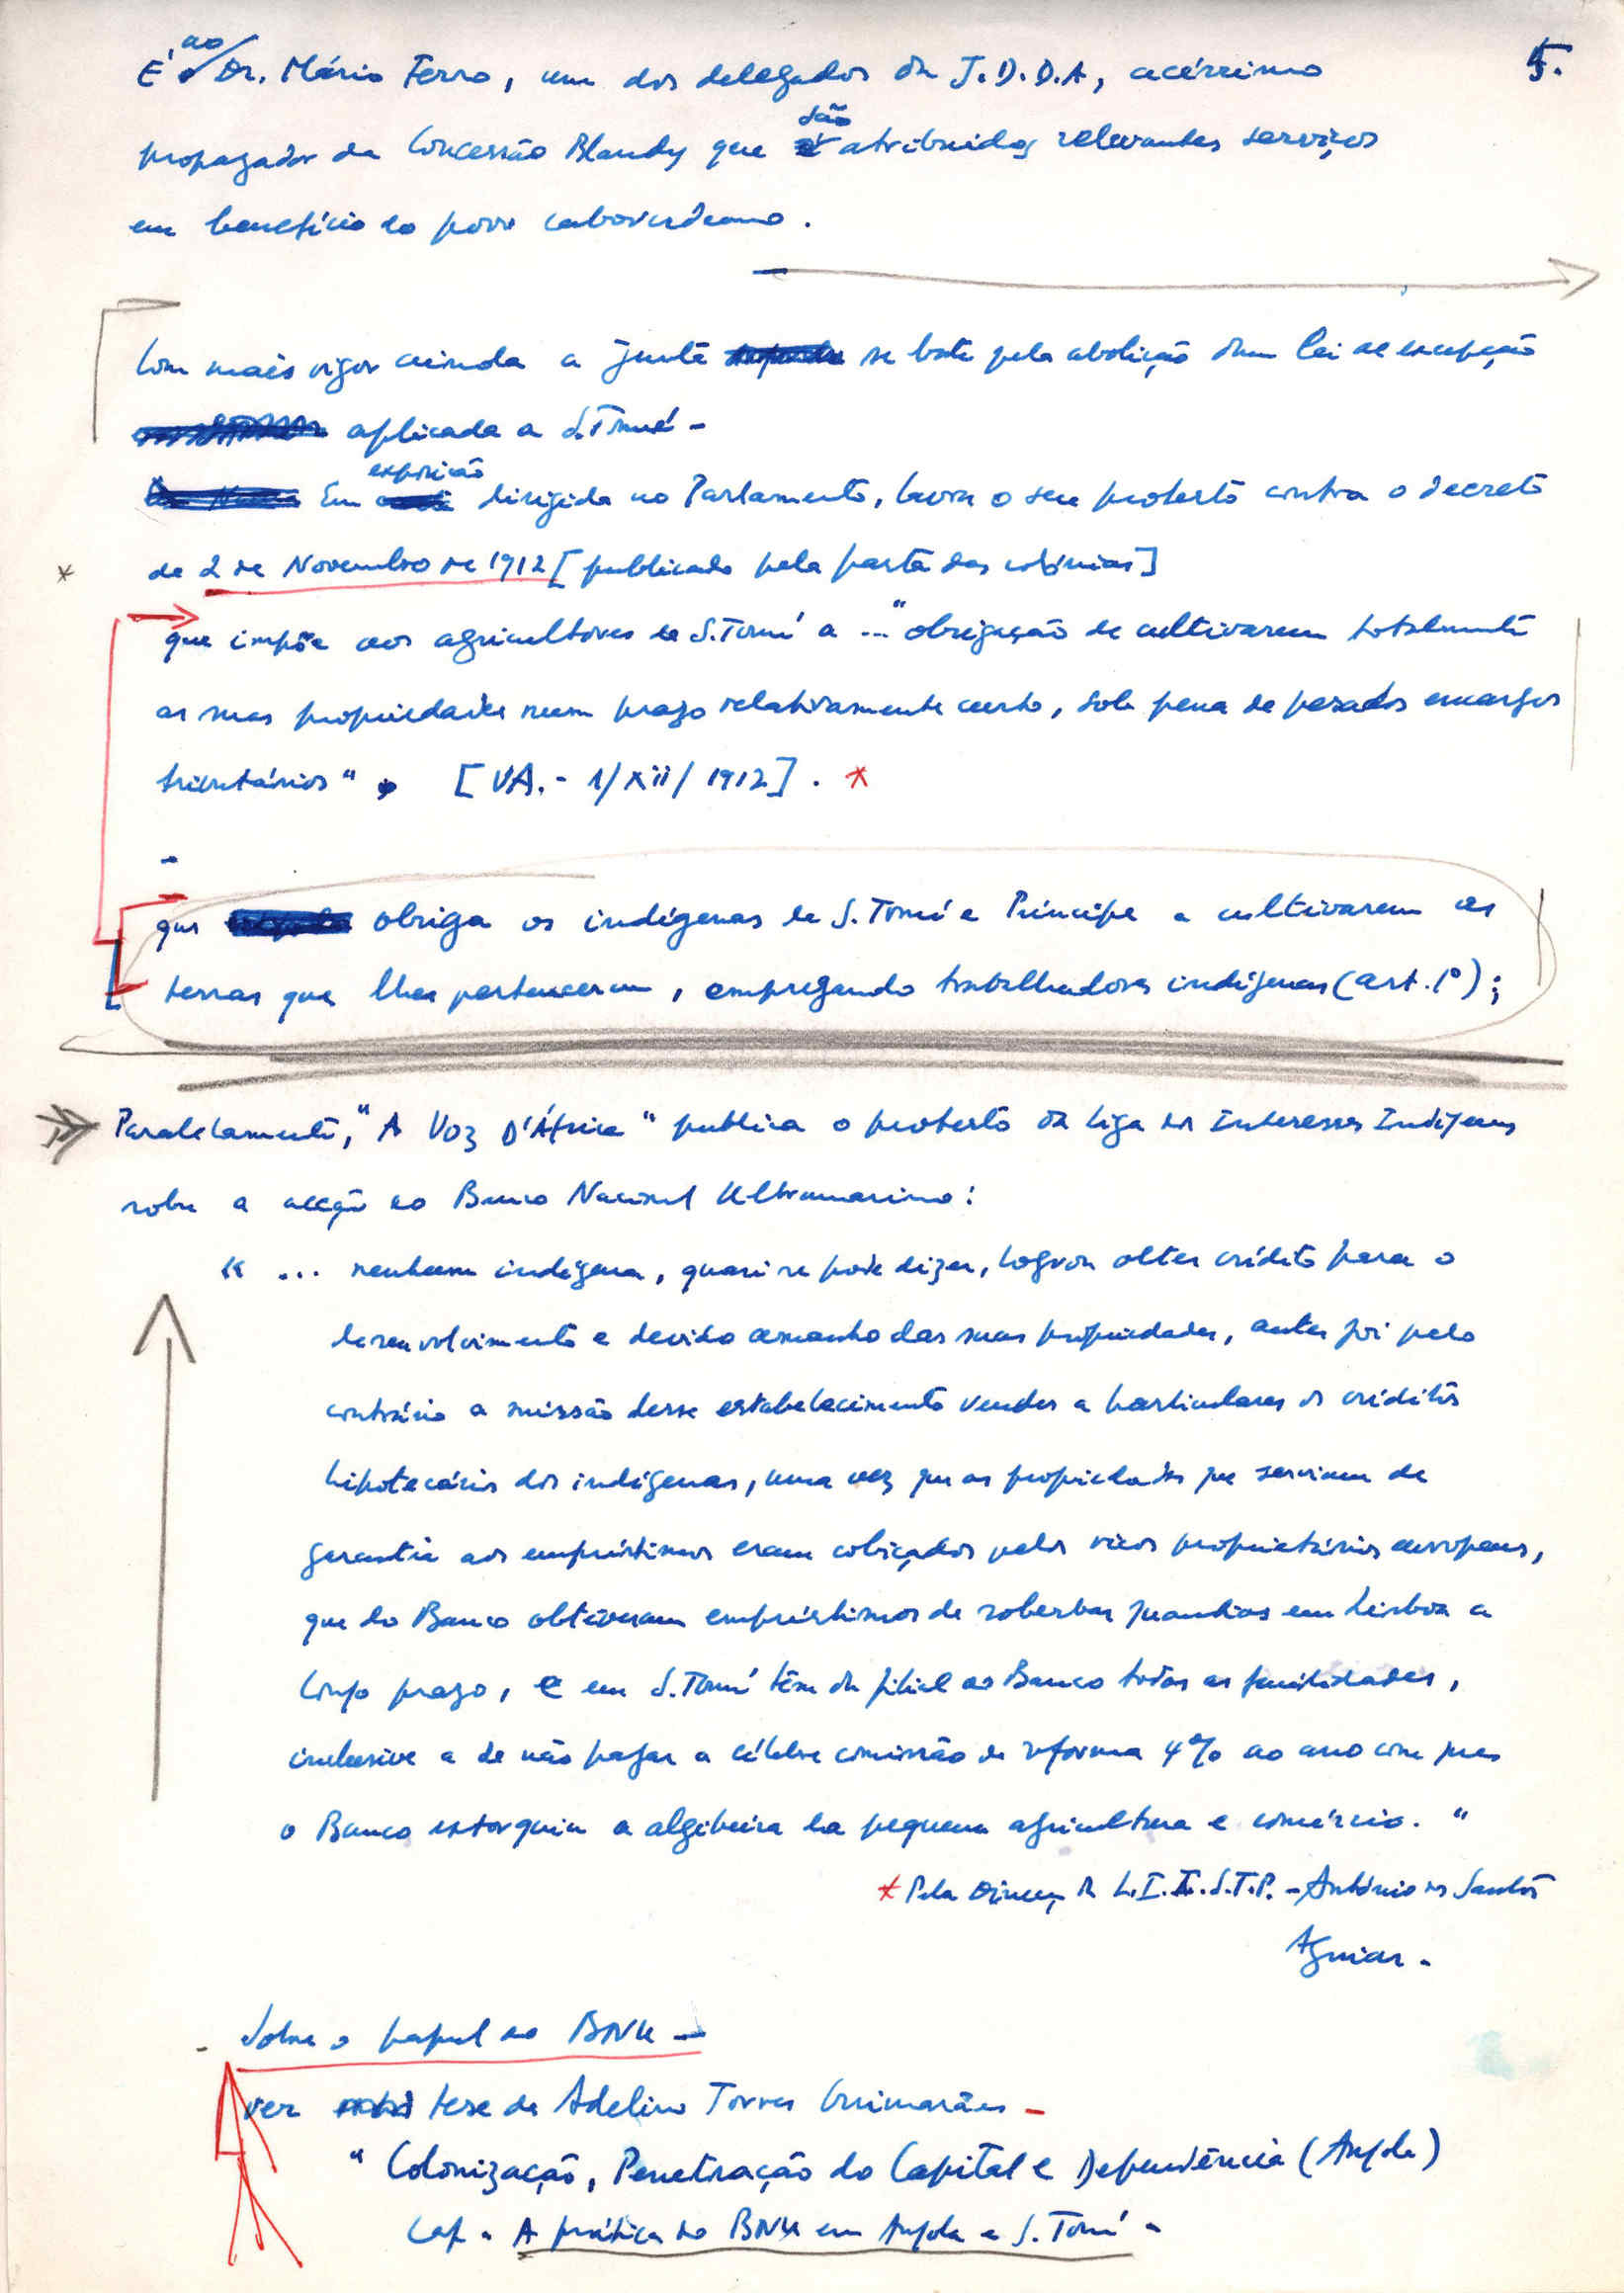 5.
É ao Dr. Mário Ferro, um dos delegados da J.D.D.A, acérrimo
propagador da Concessão Blandy que são atribuidos relevantes serviços
em benefício do povo caboverdeano.
Com mais vigor ainda a Junta se bate pela abolição duma lei de excepção
aplicada a S.Tomé -
Em exposição dirigida ao Parlamento, lavra o seu protesto contra o decreto
* de 2 de Novembro de 1912 [publicado pela pasta das colónias]
que impõe aos agricultores de S.Tomé a ... "obrigação de cultivarem totalmente
as suas propriedades num prazo relativamente curto, sob pena de pesados encargos
tributários" [VA. - 1/XII/1912]. *
que obriga os indígenas de S. Tomé e Príncipe a cultivarem as
terras que lhes pertencerem, empregando trabalhadores indígenas (art. 1º);
Paralelamente, "A Voz D'África" publica o protesto da Liga dos Interesses Indígenas
sobre a acção do Banco Nacional Ultramarino:
« ... nenhum indígena, quasi se pode dizer, logrou obter crédito para o
desenvolvimento e devido amanho das suas propriedades, antes foi pelo
contrário a missão desse estabelecimento vender a particulares os créditos
hipotecários dos indígenas, uma vez que as propriedades que serviam de
garantia aos empréstimos eram cobiçados pelos ricos proprietários europeus,
que do Banco obtiveram empréstimos de soberbas quantias em Lisboa a
longo prazo, e em S.Tomé têm da filial do Banco todas as facilidades,
inclusive a de não pagar a célebre comissão de reforma 4% ao ano com que
o Banco extorquia a algibeira da pequena agricultura e comércio."
* Pela Direcç. da L.I.I.S.T.P. - António dos Santos
Aguiar -
- Sobre o papel do BNU -
ver tese de Adelino Torres Guimarães -
" Colonização, Penetração do Capital e Dependência (Angola)
Cap - A prática do BNU em Angola e S. Tomé -